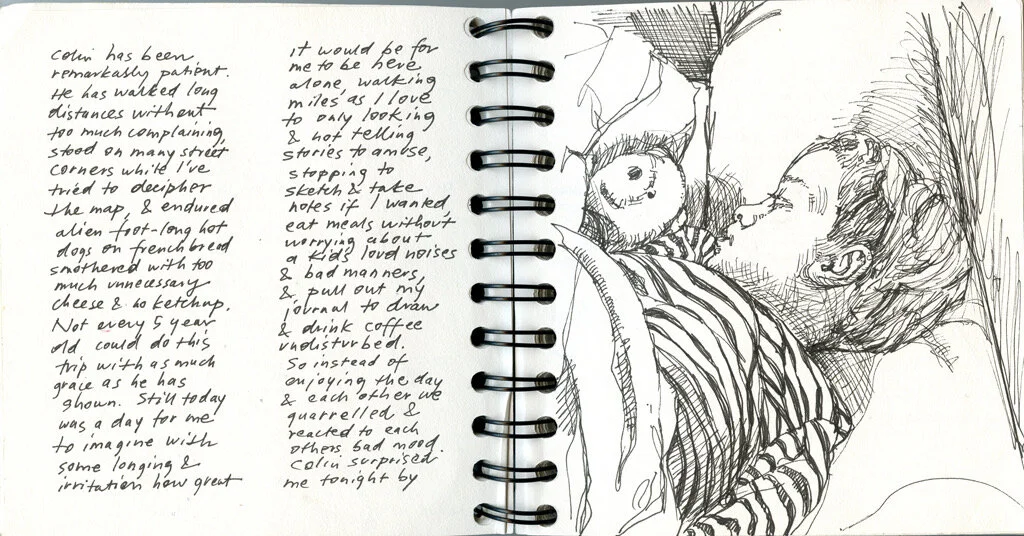 Colin has been
remarkably patient.
He has walked long
distances without
too much complaining,
stood on many street
corners while I've
tried to decipher
the map, & endured
alien foot-long hot
dogs on french bread
smothered with too
much unnecessary
cheese & no ketchup.
Not every 5 year
old could do this
trip with as much
grace as he has
shown. Still today
was a day for me
to imagine with
some longing &
irritation how great
it would be for
me to be here
alone, walking
miles as I love
to only looking
& not telling
stories to amuse,
stopping to
sketch & take
notes if I wanted
eat meals without
worrying about
a kids loud noises
& bad manners,
& pull out my
journal to draw
& drink coffee
undisturbed.
So instead of
enjoying the day
& each other we
quarrelled &
reacted to each
others bad mood.
Colin surprised
me tonight by